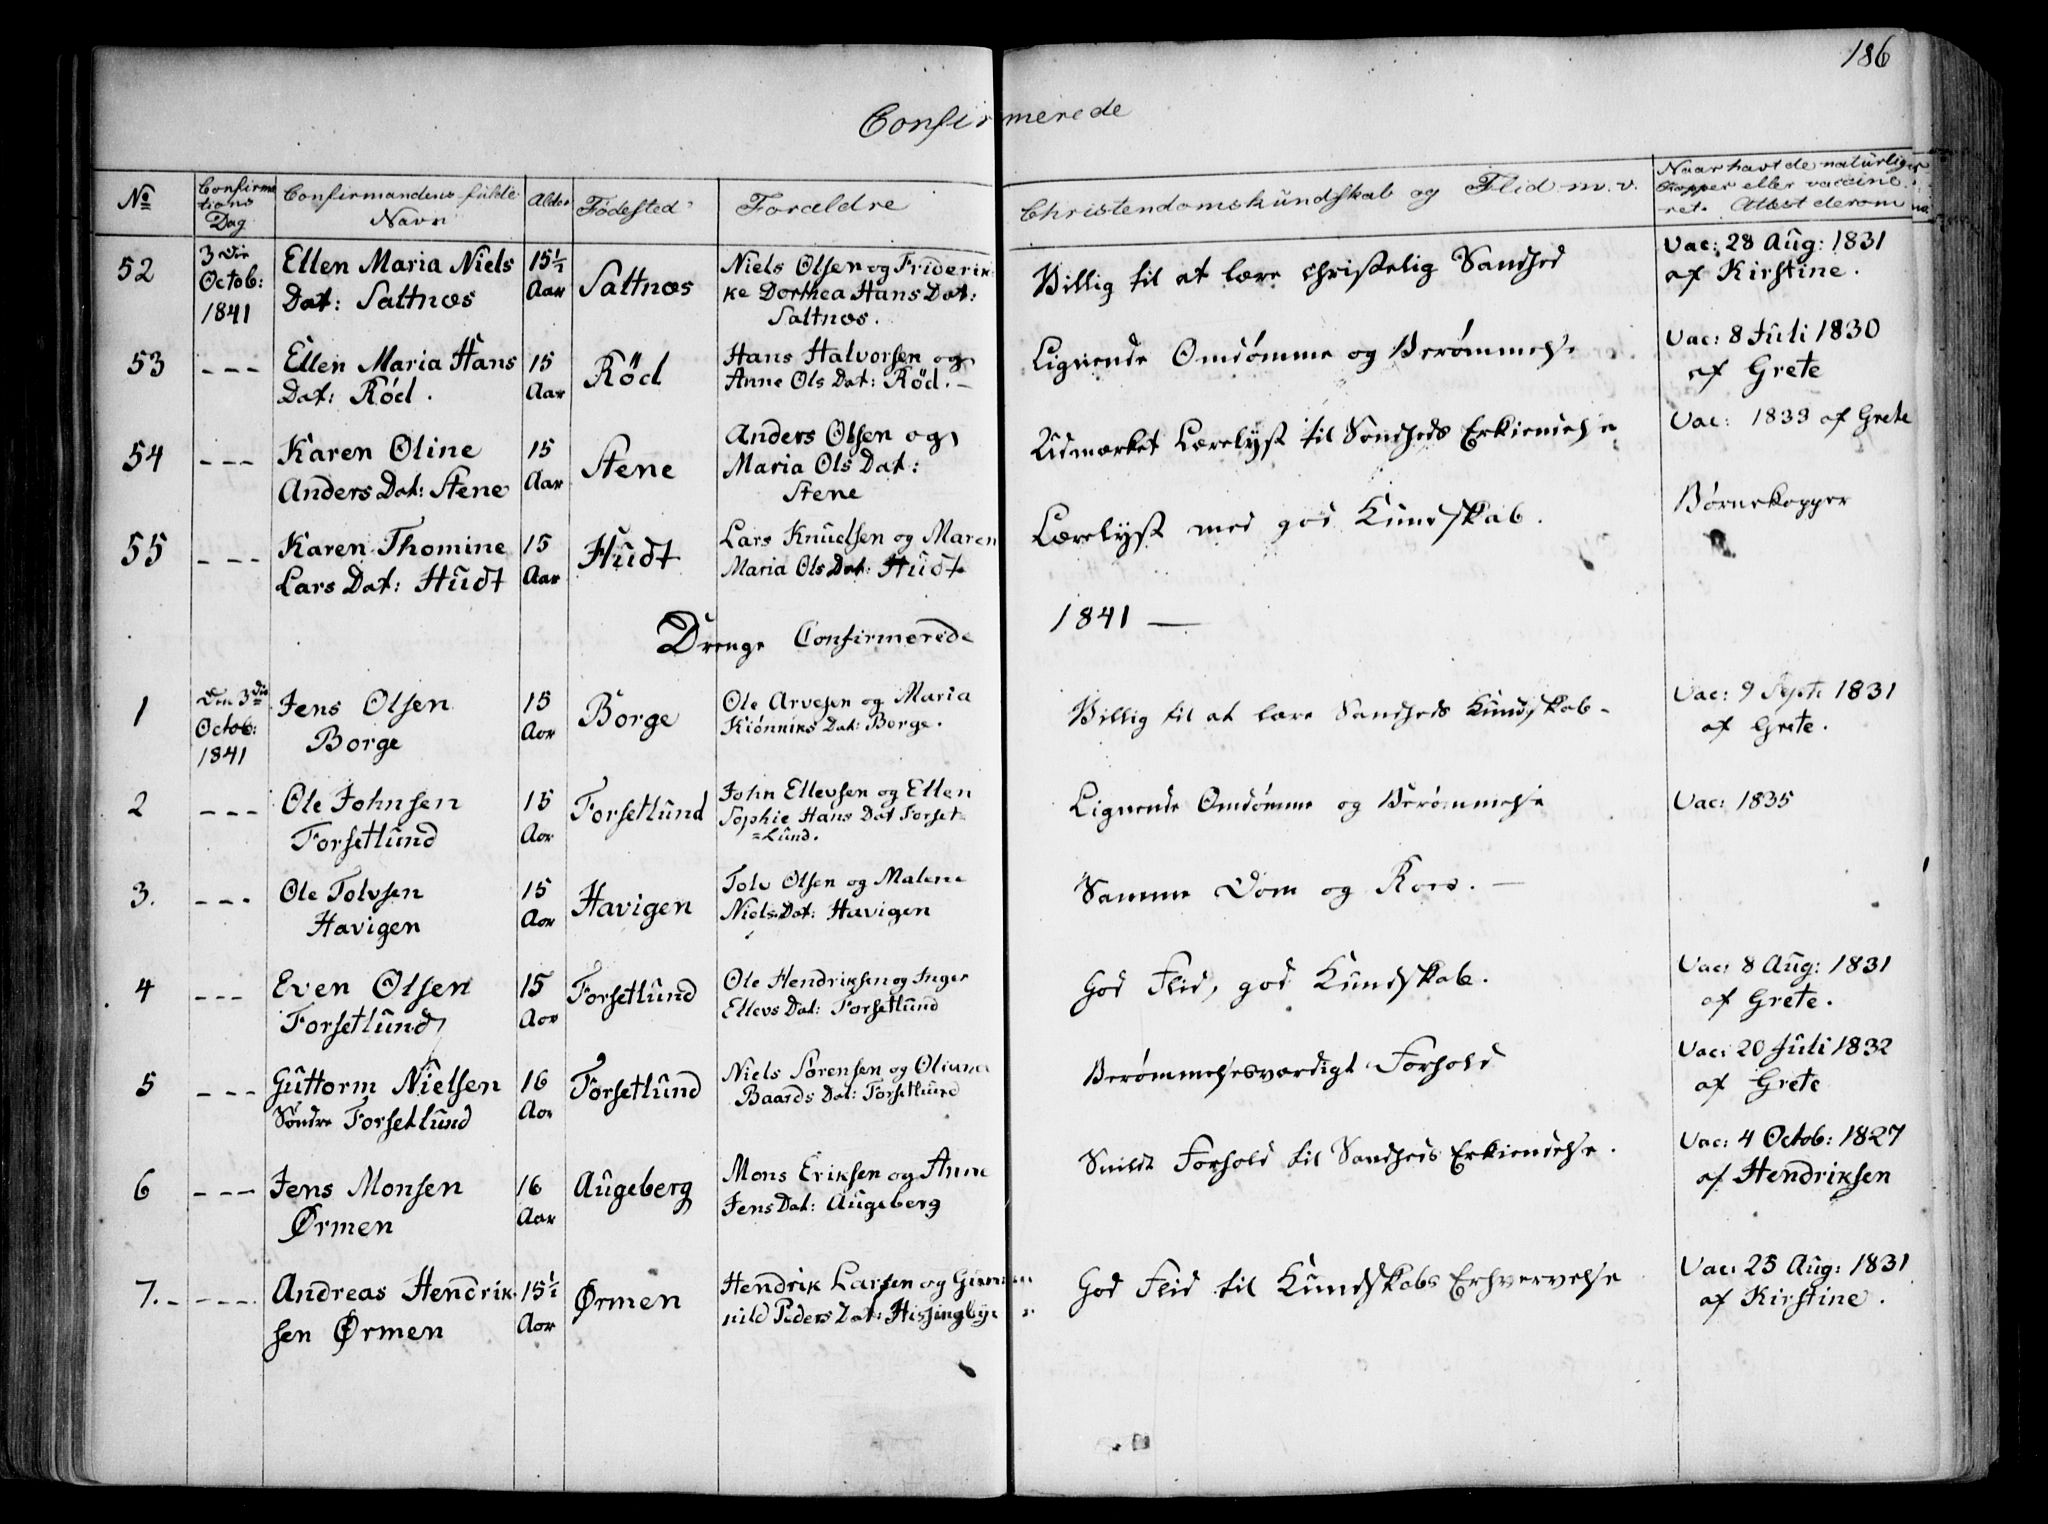 186
Confirmerede
No
Confirma
tions
Dag
Confirmandens fulde
Navn
Alder
Fødested
Forældre
Christendomskundskab og Flid m.v.
Naar havt de naturlige
Kopper eller vaccine
ret. Attest derom
52
3die
Octob:
1841
Ellen Maria Niels
Dat: Saltnæs
15½
Aar
Saltnæs
Niels Olsen og Friderik
ke Dorthea Hans Dat:
Saltnæs.
Villig til at lære christelig Sandhed
Vac: 28 Aug: 1831
af Kirstine.
53
- - -
Ellen Maria Hans
Dat: Röd.
15
Aar
Röd
Hans Halvorsen og
Anne Ols Dat: Röd. -
Lignende Omdømme og Berømmelse
Vac: 8 Juli 1830
af Grete
54
- - -
Karen Oline
Anders Dat: Stene
15
Aar
Stene
Anders Olsen og
Maria Ols Dat:
Stene
Udmærket Lærelyst til Sandheds Erkiendelse
Vac: 1833 af Grete
55
- - -
Karen Thomine
Lars Dat: Hudt
15
Aar
Hudt
Lars Knudsen og Maren
Maria Ols Dat: Hudt
Lærelyst med god Kundskab.
Børnekopper
Drenge Confirmerede
1841 —
1
Den 3die
Octob:
1841
Jens Olsen
Borge
15
Aar
Borge
Ole Arvesen og Maria
Kiönniks Dat: Borge.
Villig til at lære Sandheds Kundskab -
Vac: 9 Septr 1831
af Grete.
2
- - -
Ole Johnsen
Forsetlund
15
Aar
Forsetlund
John Ellevsen og Ellen
Sophie Hans Dat Forset
=lund.
Lignende Omdømme og Berømmelse
Vac: 1835
3.
- - -
Ole Tolvsen
Havigen
15
Aar
Havigen
Tolv Olsen og Malene
Niels Dat: Havigen
Samme Dom og Roes. —
4
- - -
Even Olsen
Forsetlund
15
Aar
Forsetlund
Ole Hendriksen og Inger
Ellevs Dat: Forsetlund
God Flid, god Kundskab.
Vac: 8 Aug: 1831
af Grete.
5
- - -
Guttorm Nielsen
Søndre Forsetlund
16
Aar
Forsetlund
Niels Sørensen og Oliana
Baards Dat: Forsetlund
Berømmelsesværdigt Forhold
Vac: 20 Juli 1832
af Grete
6
- - -
Jens Monsen
Ørmen
16
Aar
Augeberg
Mons Eriksen og Anne
Jens Dat: Augeberg
Snildt Forhold til Sandheds Erkiendelse.
Vac: 4 Octob: 1827
af Hendriksen
7. -
- - -
Andreas Hendrik
sen Ørmen
15½
Aar
Ørmen
Hendrik Larsen og
Peders Dat: Hissingbye
God Flid til Kundskabs Erhvervelse
Vac: 25 Aug: 1831
af Kirstine.